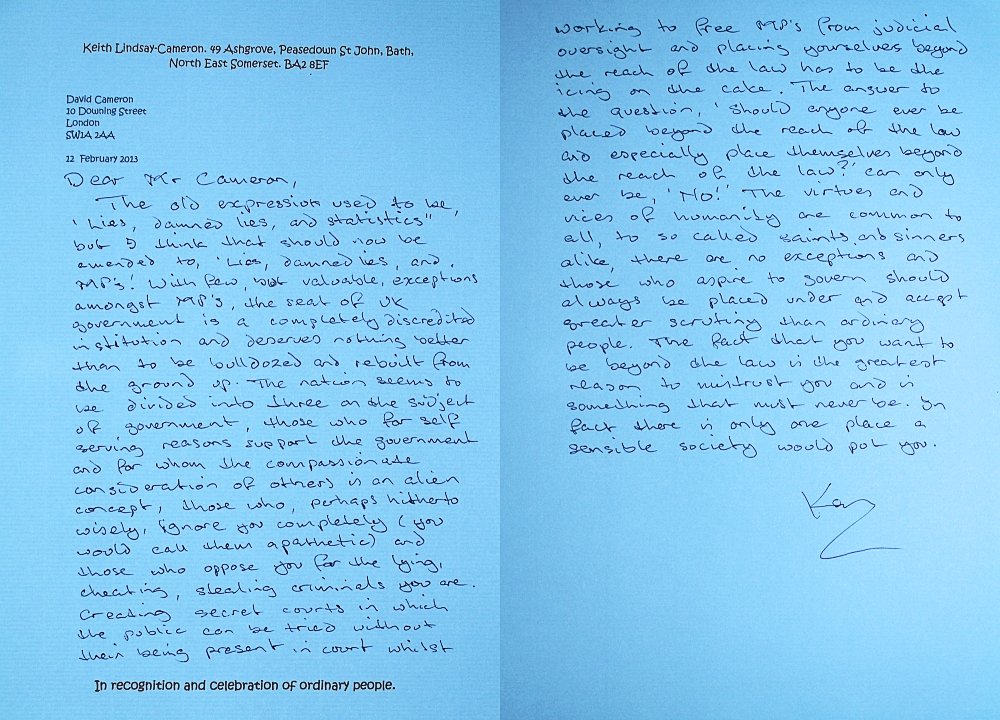 Keith Lindsay-Cameron. 49 Ashgrove, Peasedown St John, Bath,
North East Somerset. BA2 8EF
David Cameron
10 Downing Street
London
SW1A 2AA
12 February 2013
Dear Mr Cameron,
The old expression used to be,
'Lies, damned lies, and statistics"
but I think that should now be
amended to, 'Lies, damned lies, and,
MP's! With few, but valuable, exceptions
amongst MP's, the seat of UK
government is a completely discredited
institution and deserves nothing better
than to be bulldozed and rebuilt from
the ground up. The nation seems to
be divided into three on the subject
of government, those who for self
serving reasons support the government
and for whom the compassionate
consideration of others is an alien
concept, those who, perhaps hitherto
wisely, ignore you completely (you
would call them apathetic) and
those who oppose you for the lying,
cheating, stealing criminals you are.
Creating secret courts in which
the public can be tried without
their being present in court whilst
In recognition and celebration of ordinary people.
working to free MP's from judicial
oversight and placing yourselves beyond
the reach of the law has to be the
icing on the cake. The answer to
the question, 'Should anyone ever be
placed beyond the reach of the law
and especially place themselves beyond
the reach of the law?' can only
ever be, 'No!' The virtues and
vices of humanity are common to
all, to so called saints and sinners
alike, there are no exceptions and
those who aspire to govern should
always be placed under and accept
greater scrutiny than ordinary
people. The fact that you want to
be beyond the law is the greatest
reason to mistrust you and is
something that must never be. In
fact there is only one place a
sensible society would put you.